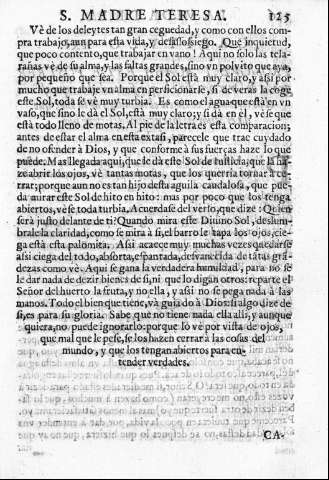 S. MADRE TERESA. 125
Vè de los deleytes tan gran ceguedad, y como con ellos com
pra trabajo, aun para esta vida, y desassossiego. Que inquietud,
que poco contento, que trabajar en vano! Aqui no solo las tela-
rañas vè de su alma, y las faltas grandes, sino vn polvito que aya,
por pequeño que sea. Porque el Sol està muy claro, y assi por
mucho que trabaje vn alma en perficionarse, si de veras la coge
este Sol, toda se vè muy turbia. Es como el agua que està en vn
vaso, que sino le dà el Sol, està muy claro; y si dà en èl, vese que
està todo lleno de motas. Al pie de la letra es esta comparacion;
antes de estar el alma en esta extasi, parecele que trae cuydado
de no ofender à Dios, y que conforme à sus fuerças haze lo que
puede. Mas llegada aqui, que le dà este Sol de Iusticia, que la ha-
ze abrir los ojos, vè tantas motas, que los querria tornar à cer-
rar; porque aun no es tan hijo desta aguila caudalosa, que pue-
da mirar este Sol de hito en hito: mas por poco que los tenga
abiertos, vese toda turbia. Acuerdase del verso, que dize: Quien
serà justo delante de ti? Quando mira este Diuino Sol, deslum-
brale la claridad, como se mira à si, el barro le tapa los ojos, cie-
ga està esta palomita. Assi acaece muy muchas vezes quedarse
assi ciega del todo, absorta, espantada, desvanecida de tãtas grã-
dezas como vè. Aqui se gana la verdadera humildad, para no se
le dar nada de dezir bienes de si, ni que lo digan otros: reparte el
Señor del huerto la fruta, y no ella, y assi no se pega nada à las
manos. Todo el bien que tiene, và guiado à Dios: si algo dize de
si, es para su gloria. Sabe que no tiene nada ella alli, y aunque
quiera, no puede ignorarlo: porque lo vè por vista de ojos,
que mal que le pese, se los hazen cerrar à las cosas del
mundo, y que los tengan abiertos para en-
tender verdades.
CA-